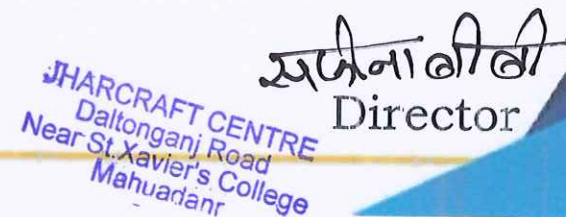 सफीना बीबी
Director
JHARCRAFT CENTRE
Daltonganj Road
Near St.Xavier's College
Mahuadanr